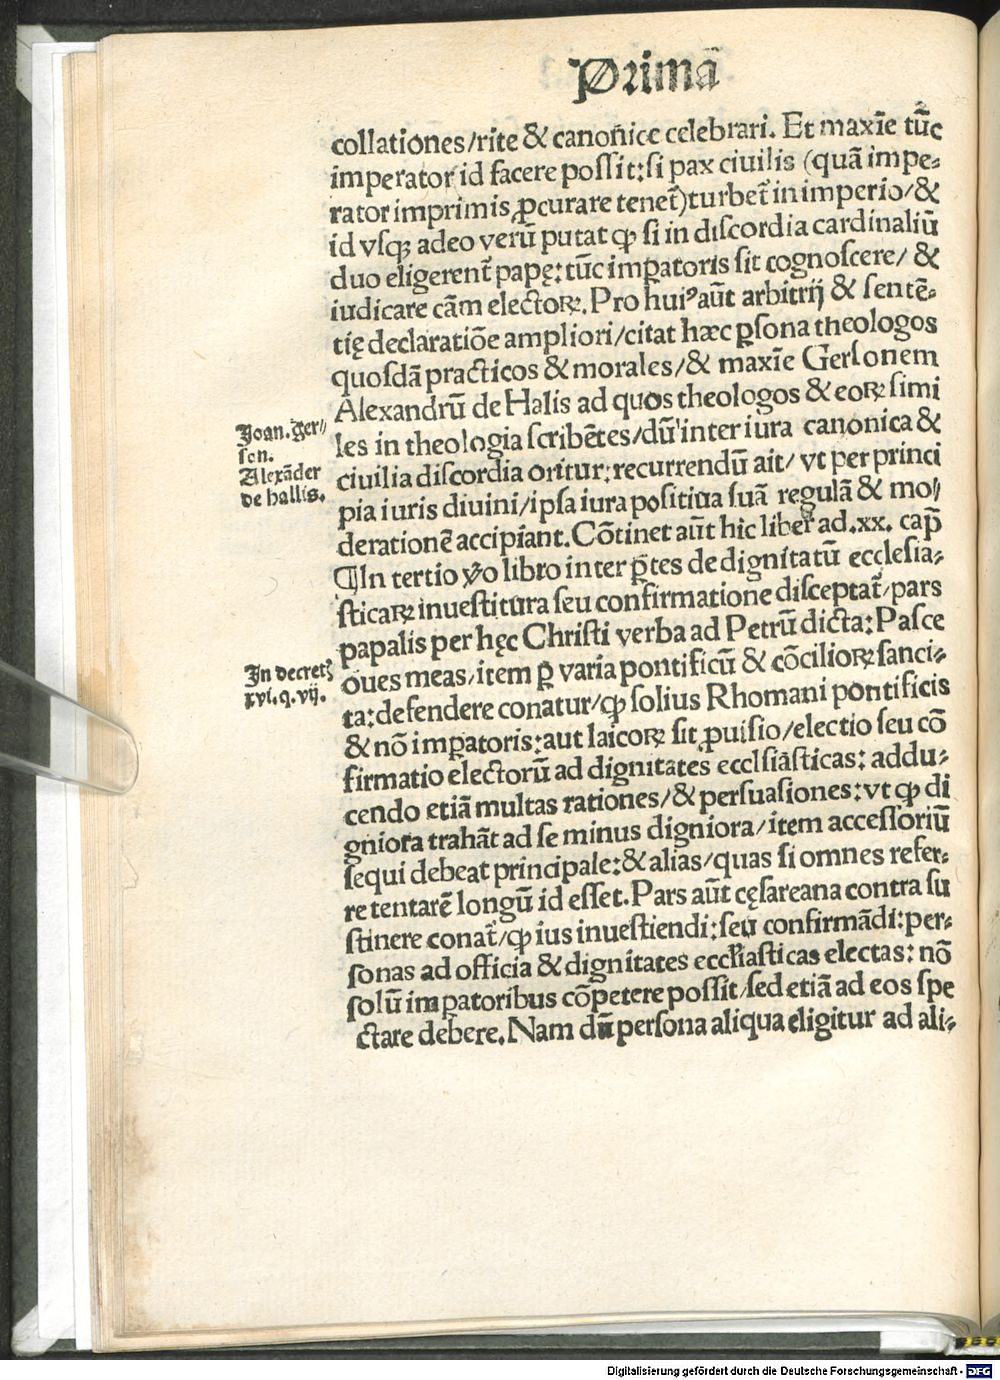 Primā
collationes/rite & canonice celebrari. Et maxīe tūc
imperator id facere possit:si pax ciuilis (quā impe-
rator imprimis ꝓcurare tenet̄)turbet̄ in imperio/&
id vsqꝫ adeo verū putat ꝙ si in discordia cardinaliū
duo eligerent̄ papę:tūc imꝑatoris sit cognoscere/ &
iudicare cām electoꝝ. Pro huiꝰ aūt arbitrij & sentē-
tię declaratiōe ampliori/citat hæc ꝑsona theologos
quosdā practicos & morales/& maxīe Gersonem
Alexandrū de Halis ad quos theologos & eoꝝ simi
les in theologia scribētes/dū inter iura canonica &
ciuilia discordia oritur:recurrendū ait/ vt per princi
pia iuris diuini/ipsa iura positiua suā regulā & mo//
derationē accipiant. Cōtinet aūt hic liber ad.xx. cap̄
¶In tertio v̄o libro inter ꝑtes de dignitatū ecclesia-
sticaꝝ inuestitura seu confirmatione disceptat̄/pars
papalis per hęc Christi verba ad Petrū dicta:Pasce
oues meas/item ꝑ varia pontificū & cōcilioꝝ sanci-
ta:defendere conatur/ꝙ solius Rhomani pontificis
& nō imꝑatoris:aut laicoꝝ sit ꝓuisio/electio seu cō
firmatio electorū ad dignitates ecclsiāsticas: addu-
cendo etiā multas rationes/& persuasiones:vt ꝙ di
gniora trahāt ad se minus digniora/item accessoriū
sequi debeat principale:& alias/quas si omnes refer-
re tentarē longū id esset. Pars aūt cęsareana contra su
stinere conat̄/ꝙ ius inuestiendi:seu confirmādi:per-
sonas ad officia & dignitates eccl̄iasticas electas: nō
solū imꝑatoribus cōpetere possit/sed etiā ad eos spe
ctare debere. Nam dū persona aliqua eligitur ad ali-
Joan. Ger//
son.
Alexāder
de hallis.
In decret̄
xvi. q. vij.
Digitalisierung gefördert durch die Deutsche Forschungsgemeinschaft - DFG